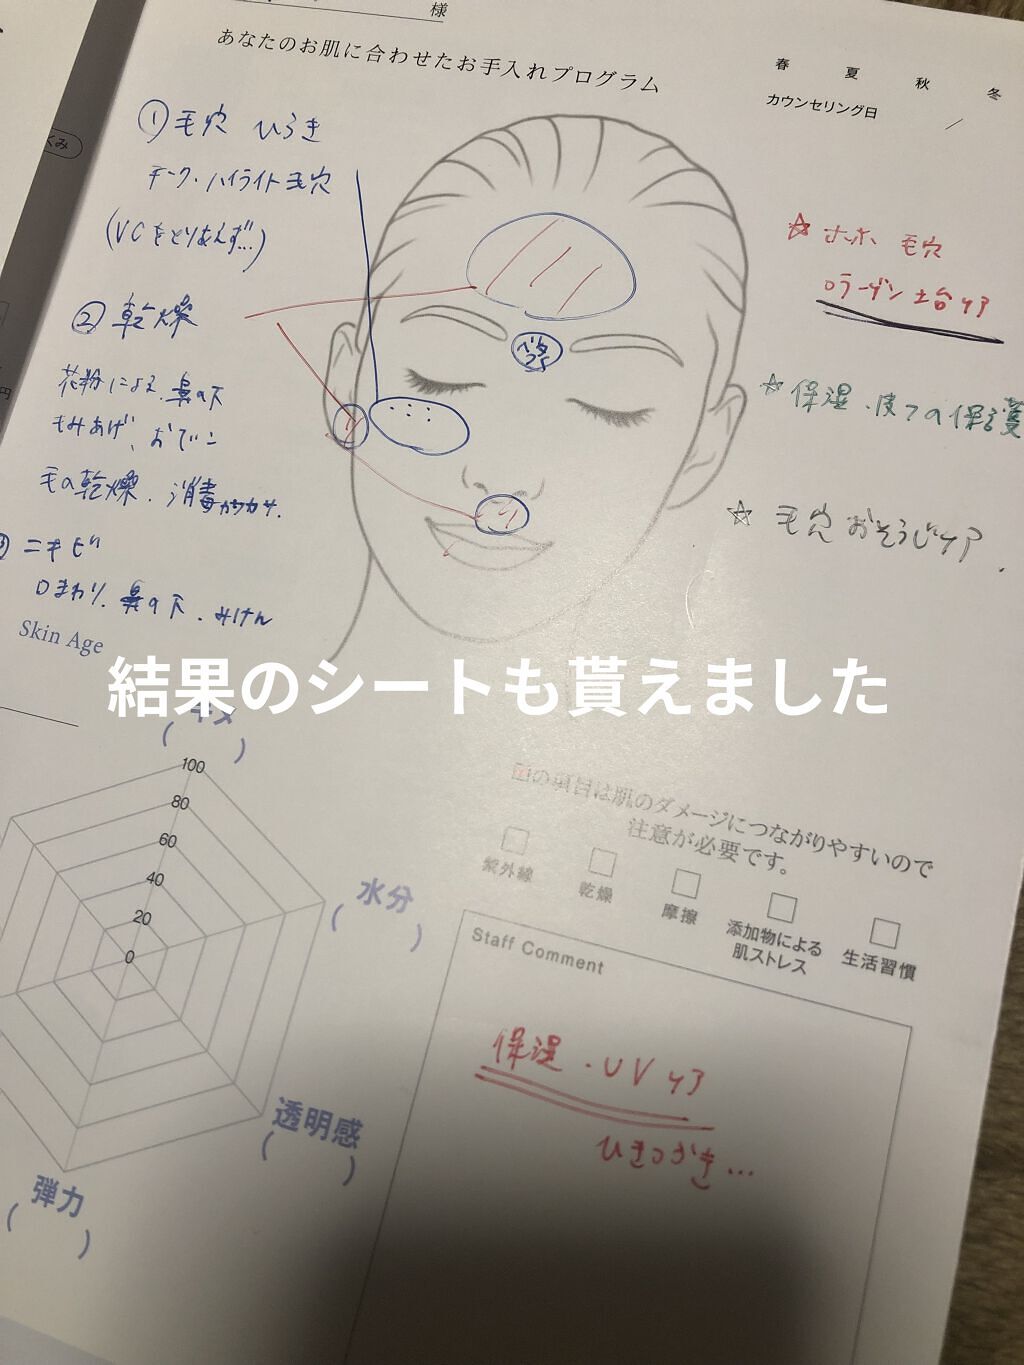 様
あなたのお肌に合わせたお手入れプログラム
春 夏 秋 冬
カウンセリング日 /
くみ
円
① 毛穴 ひらき
チーク・ハイライト毛穴
(VCをとりあえず…)
② 乾燥
花粉による、鼻の下
もみあげ、おでこ
毛の乾燥、消毒カサカサ.
ニキビ
口まわり、鼻の下、みけん
ベタつき
☆ ホホ 毛穴
コラーゲン 土台ケア
☆ 保湿、皮フの保護
☆ 毛穴 おそうじケア.
Skin Age
結果のシートも貰えました
キメ
( )
100
80
60
40
20
0
水分
( )
透明感
( )
弾力
( )
の項目は肌のダメージにつながりやすいので
注意が必要です。
紫外線
乾燥
摩擦
添加物による
肌ストレス
生活習慣
Staff Comment
保湿・UVケア
ひきつづき…